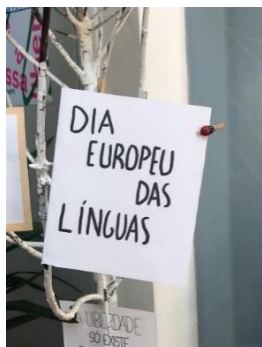 DIA
EUROPEU
DAS
LÍNGUAS
LIBERDADE
SÓ EXISTE